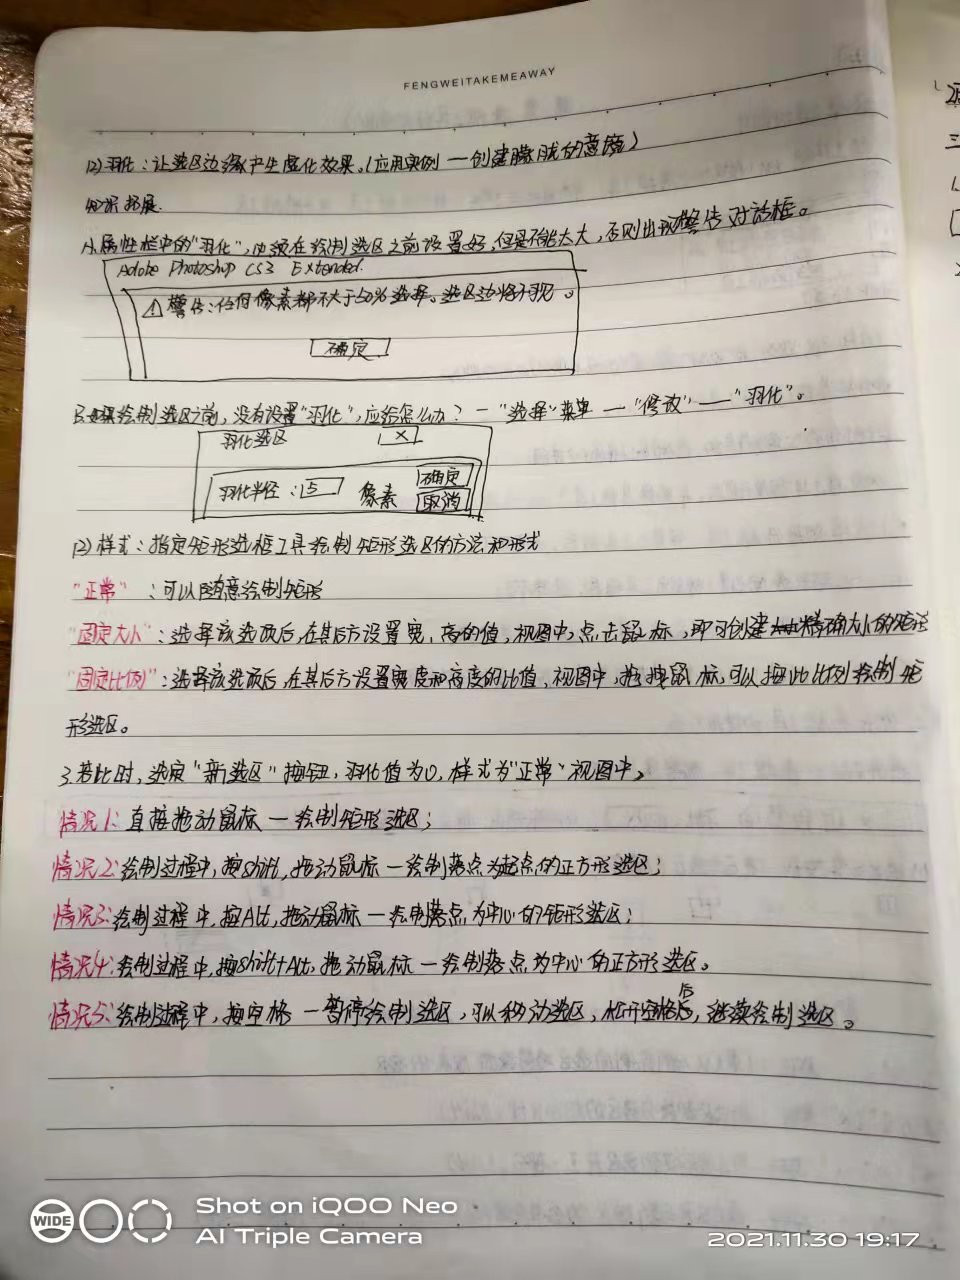 FENGWEITAKEMEAWAY
(2)羽化:让选区边缘产生虚化效果。(应用实例一创建朦胧的意境)
知识拓展.
属性栏中的"羽化",必须在绘制选区之前设置好,但是不能太大,否则出现警告对话框。
Adobe Photoshop CS3 Extended.
警告:任何像素都不大于50%选择。选区边将不可见。
确定
如果绘制选区之前,没有设置"羽化",应该怎么办?一"选择"菜单一"修改"一"羽化"。
羽化选区 X
羽化半径:5 像素 确定
取消
(2)样式:指定矩形选框工具绘制矩形选区的方法和形式
"正常":可以随意绘制矩形
"固定大小":选择该选项后,在其后方设置宽、高的值,视图中,点击鼠标,即可创建精确大小的矩形
"固定比例":选择该选项后,在其后方设置宽度和高度的比值,视图中,拖拽鼠标,可以按此比例绘制矩
形选区。
3.若此时,选定"新选区"按钮,羽化值为0,样式为"正常"视图中。
情况1:直接拖动鼠标一绘制矩形选区;
情况2:绘制过程中,按shift,拖动鼠标一绘制落点为起点的正方形选区;
情况3:绘制过程中,按Alt,拖动鼠标一绘制落点为中心的矩形选区;
情况4:绘制过程中,按shift+Alt,拖动鼠标一绘制落点为中心的正方形选区。
情况5:绘制过程中,按空格一暂停绘制选区,可以移动选区,松开空格后,继续绘制选区。
WIDE
Shot on iQOO Neo
AI Triple Camera
2021.11.30 19:17